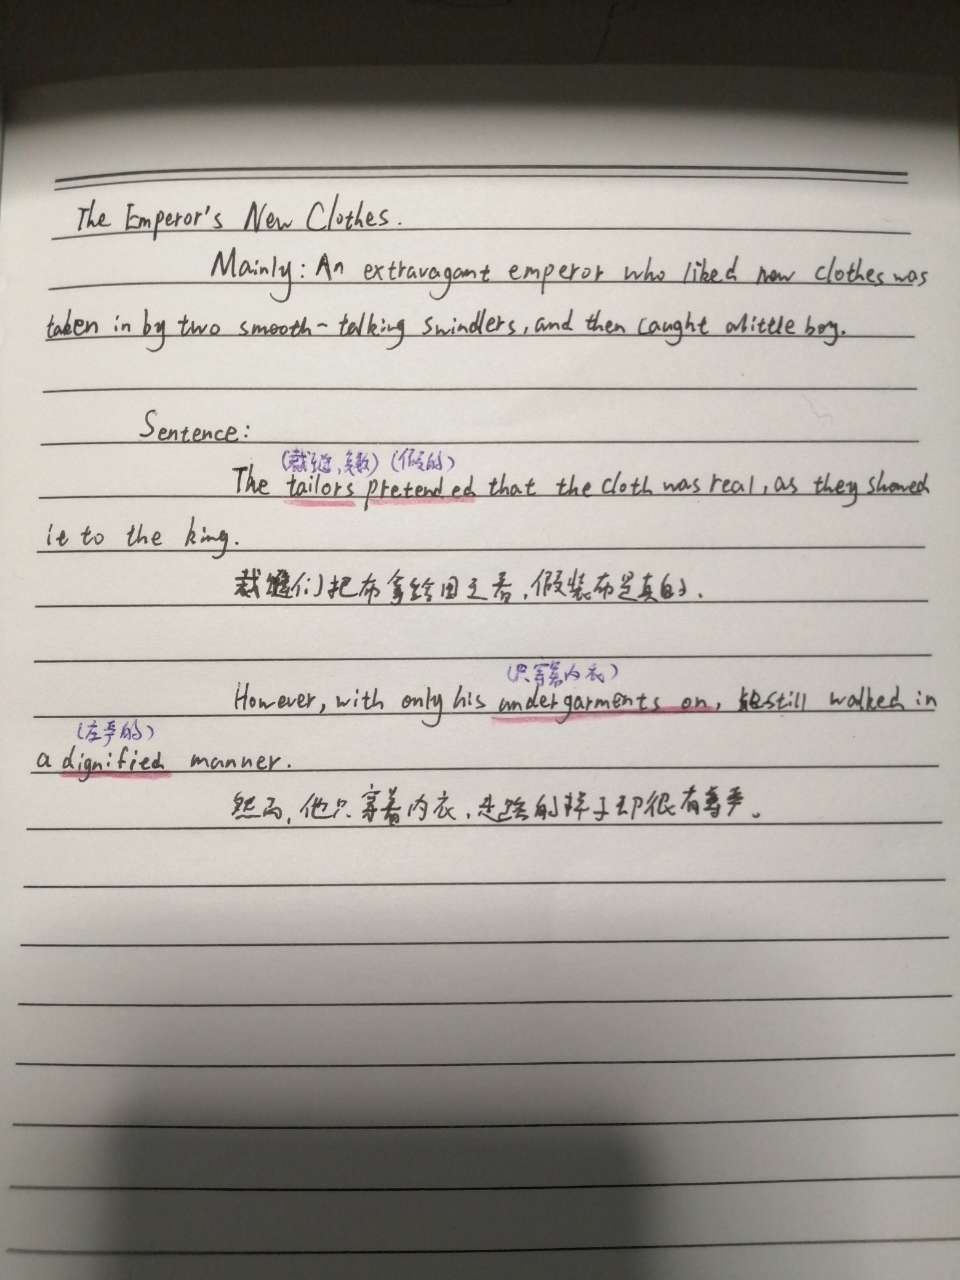 The Emperor's New Clothes.
Mainly: An extravagant emperor who liked new clothes was
taken in by two smooth-talking swindlers, and then caught alittle boy.
Sentence:
(裁缝,复数) (假的)
The tailors pretended that the cloth was real, as they showed
it to the king.
裁缝们把布拿给国王看,假装布是真的.
(只穿着内衣)
However, with only his undergarments on, still walked in
(庄严的)
a dignified manner.
然而,他只穿着内衣,走路的样子却很有尊严。